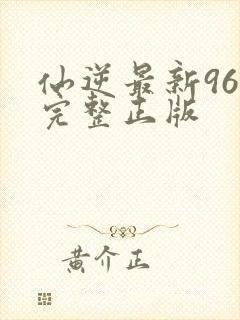 仙逆最新96
完整正版
黄介正